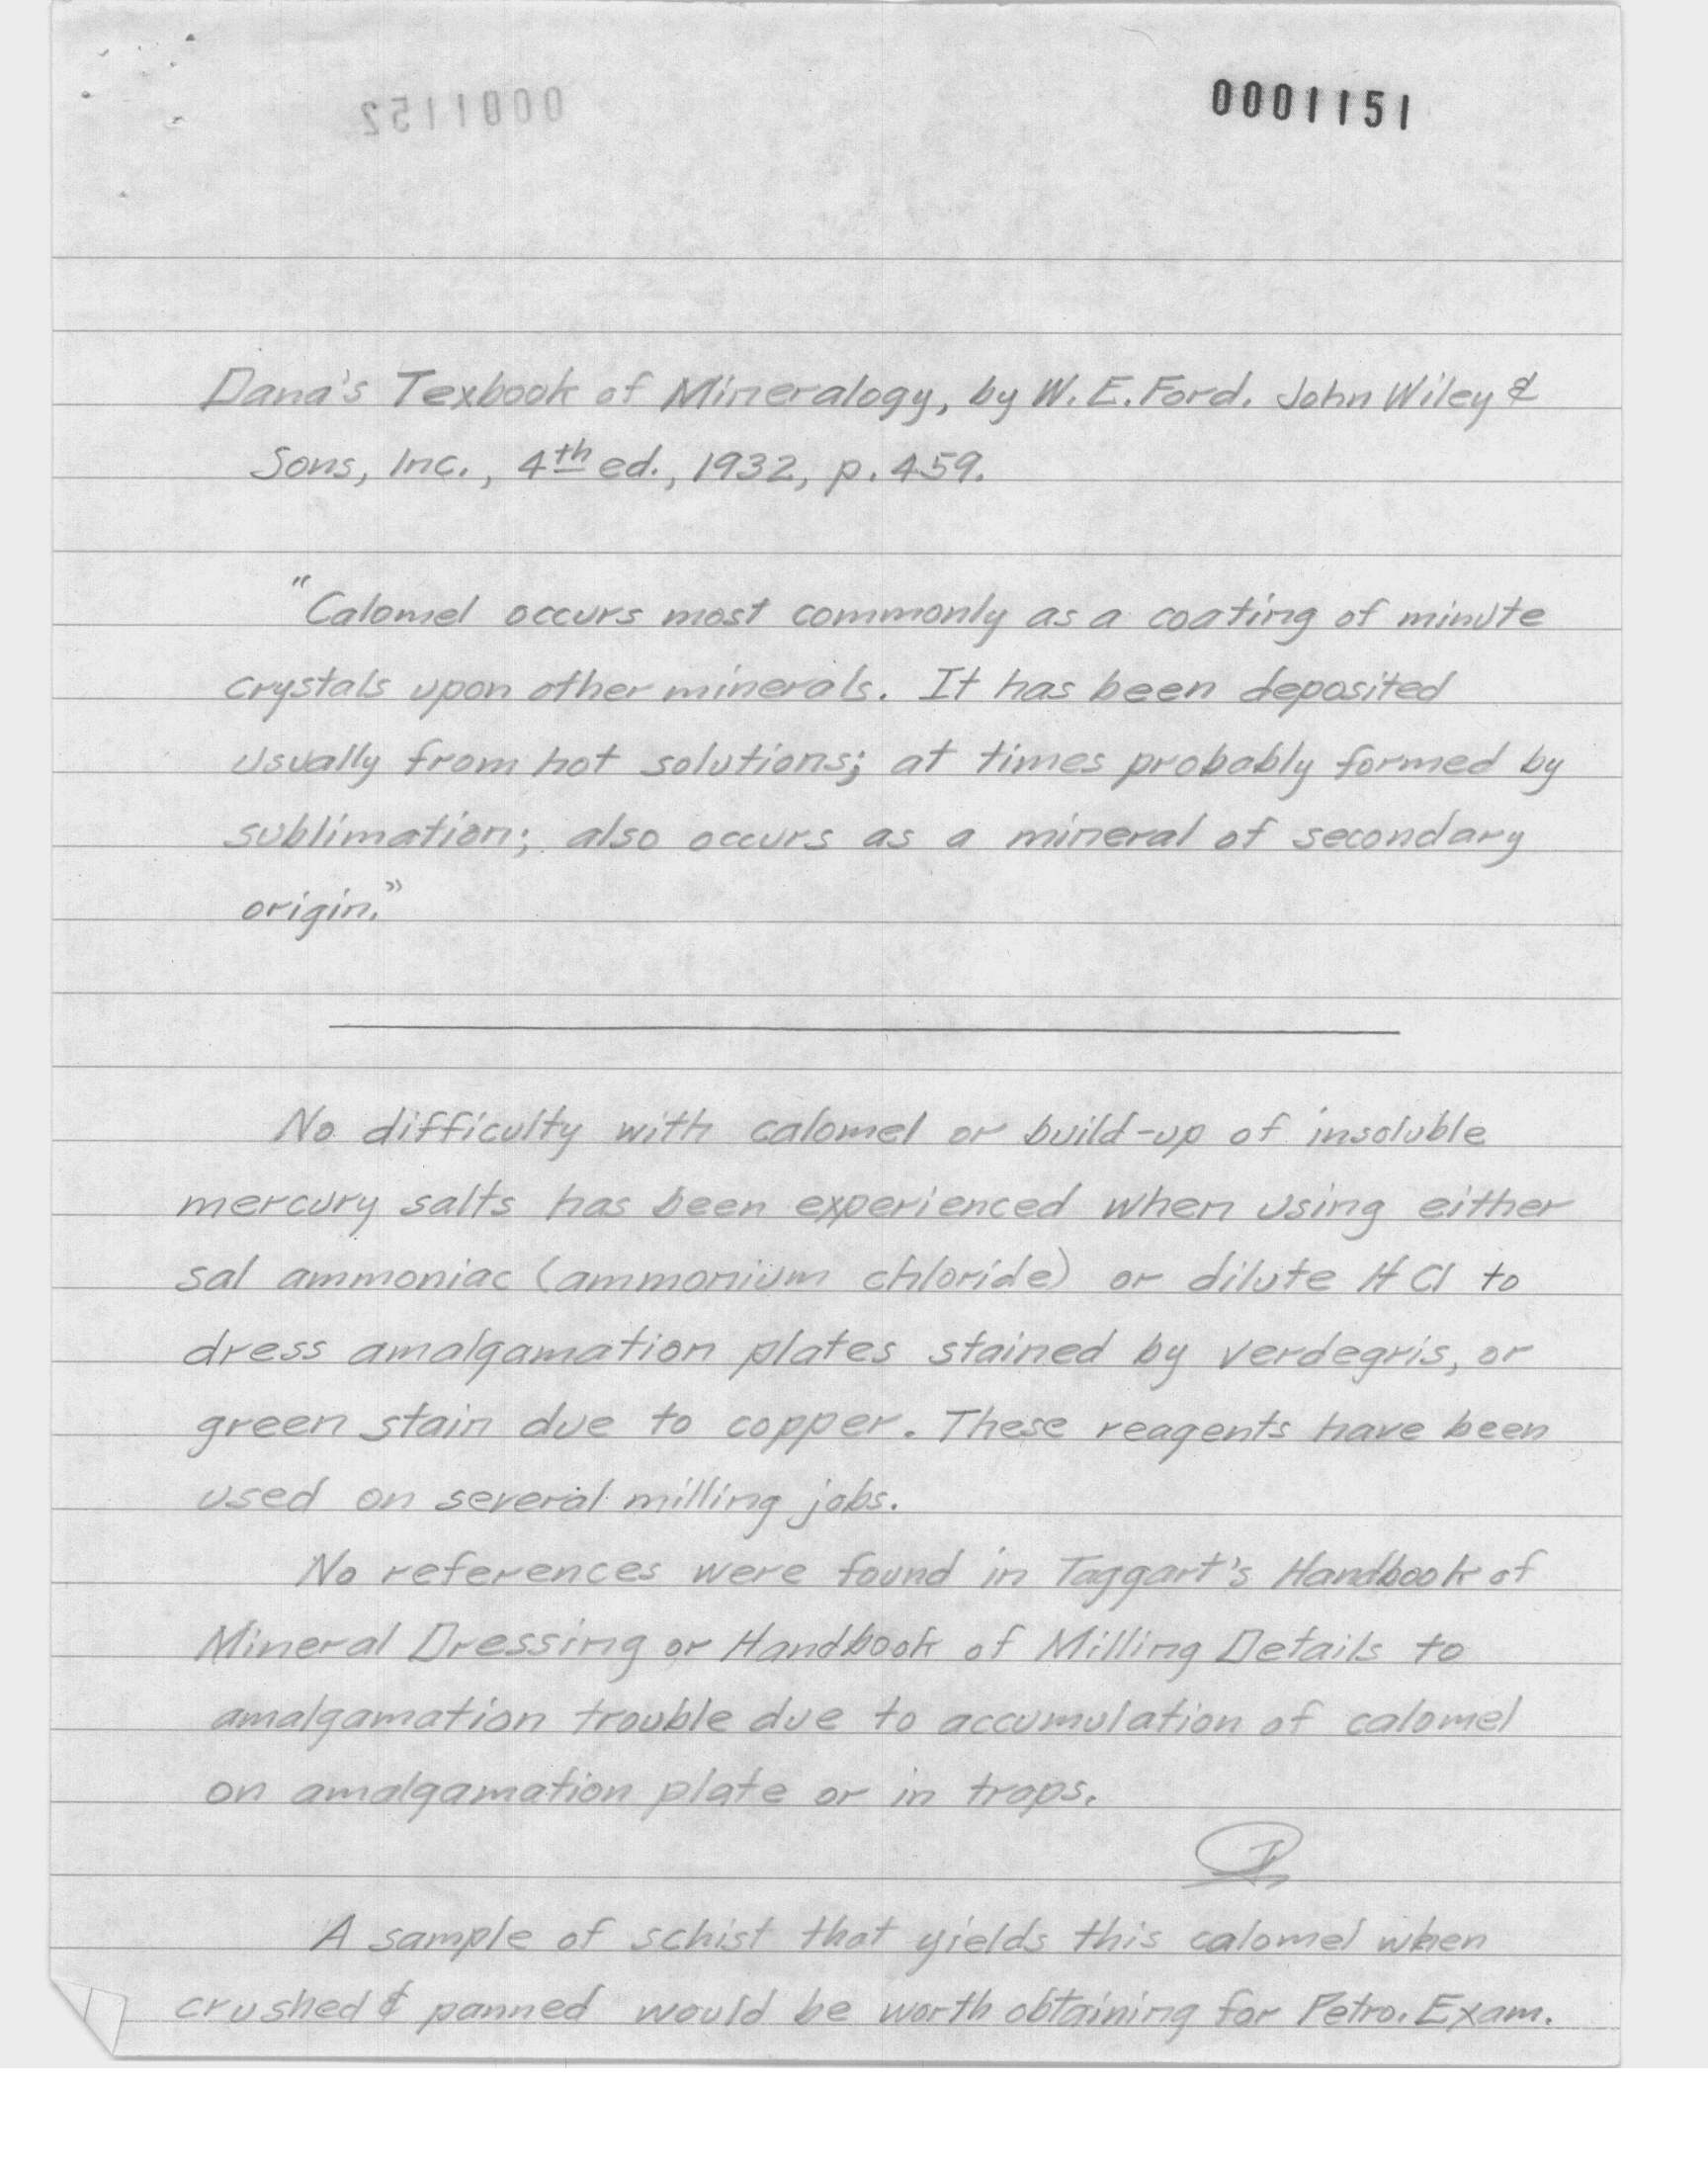 0001151
0001152
Dana's Texbook of Mineralogy, by W.E. Ford. John Wiley &
Sons, Inc., 4th ed., 1932, p. 459.
"Calomel occurs most commonly as a coating of minute
crystals upon other minerals. It has been deposited
usually from hot solutions; at times probably formed by
sublimation; also occurs as a mineral of secondary
origin."
No difficulty with calomel or build-up of insoluble
mercury salts has been experienced when using either
sal ammoniac (ammonium chloride) or dilute HCl to
dress amalgamation plates stained by verdegris, or
green stain due to copper. These reagents have been
used on several milling jobs.
No references were found in Taggart's Handbook of
Mineral Dressing or Handbook of Milling Details to
amalgamation trouble due to accumulation of calomel
on amalgamation plate or in traps.
A sample of schist that yields this calomel when
crushed & panned would be worth obtaining for Petro. Exam.